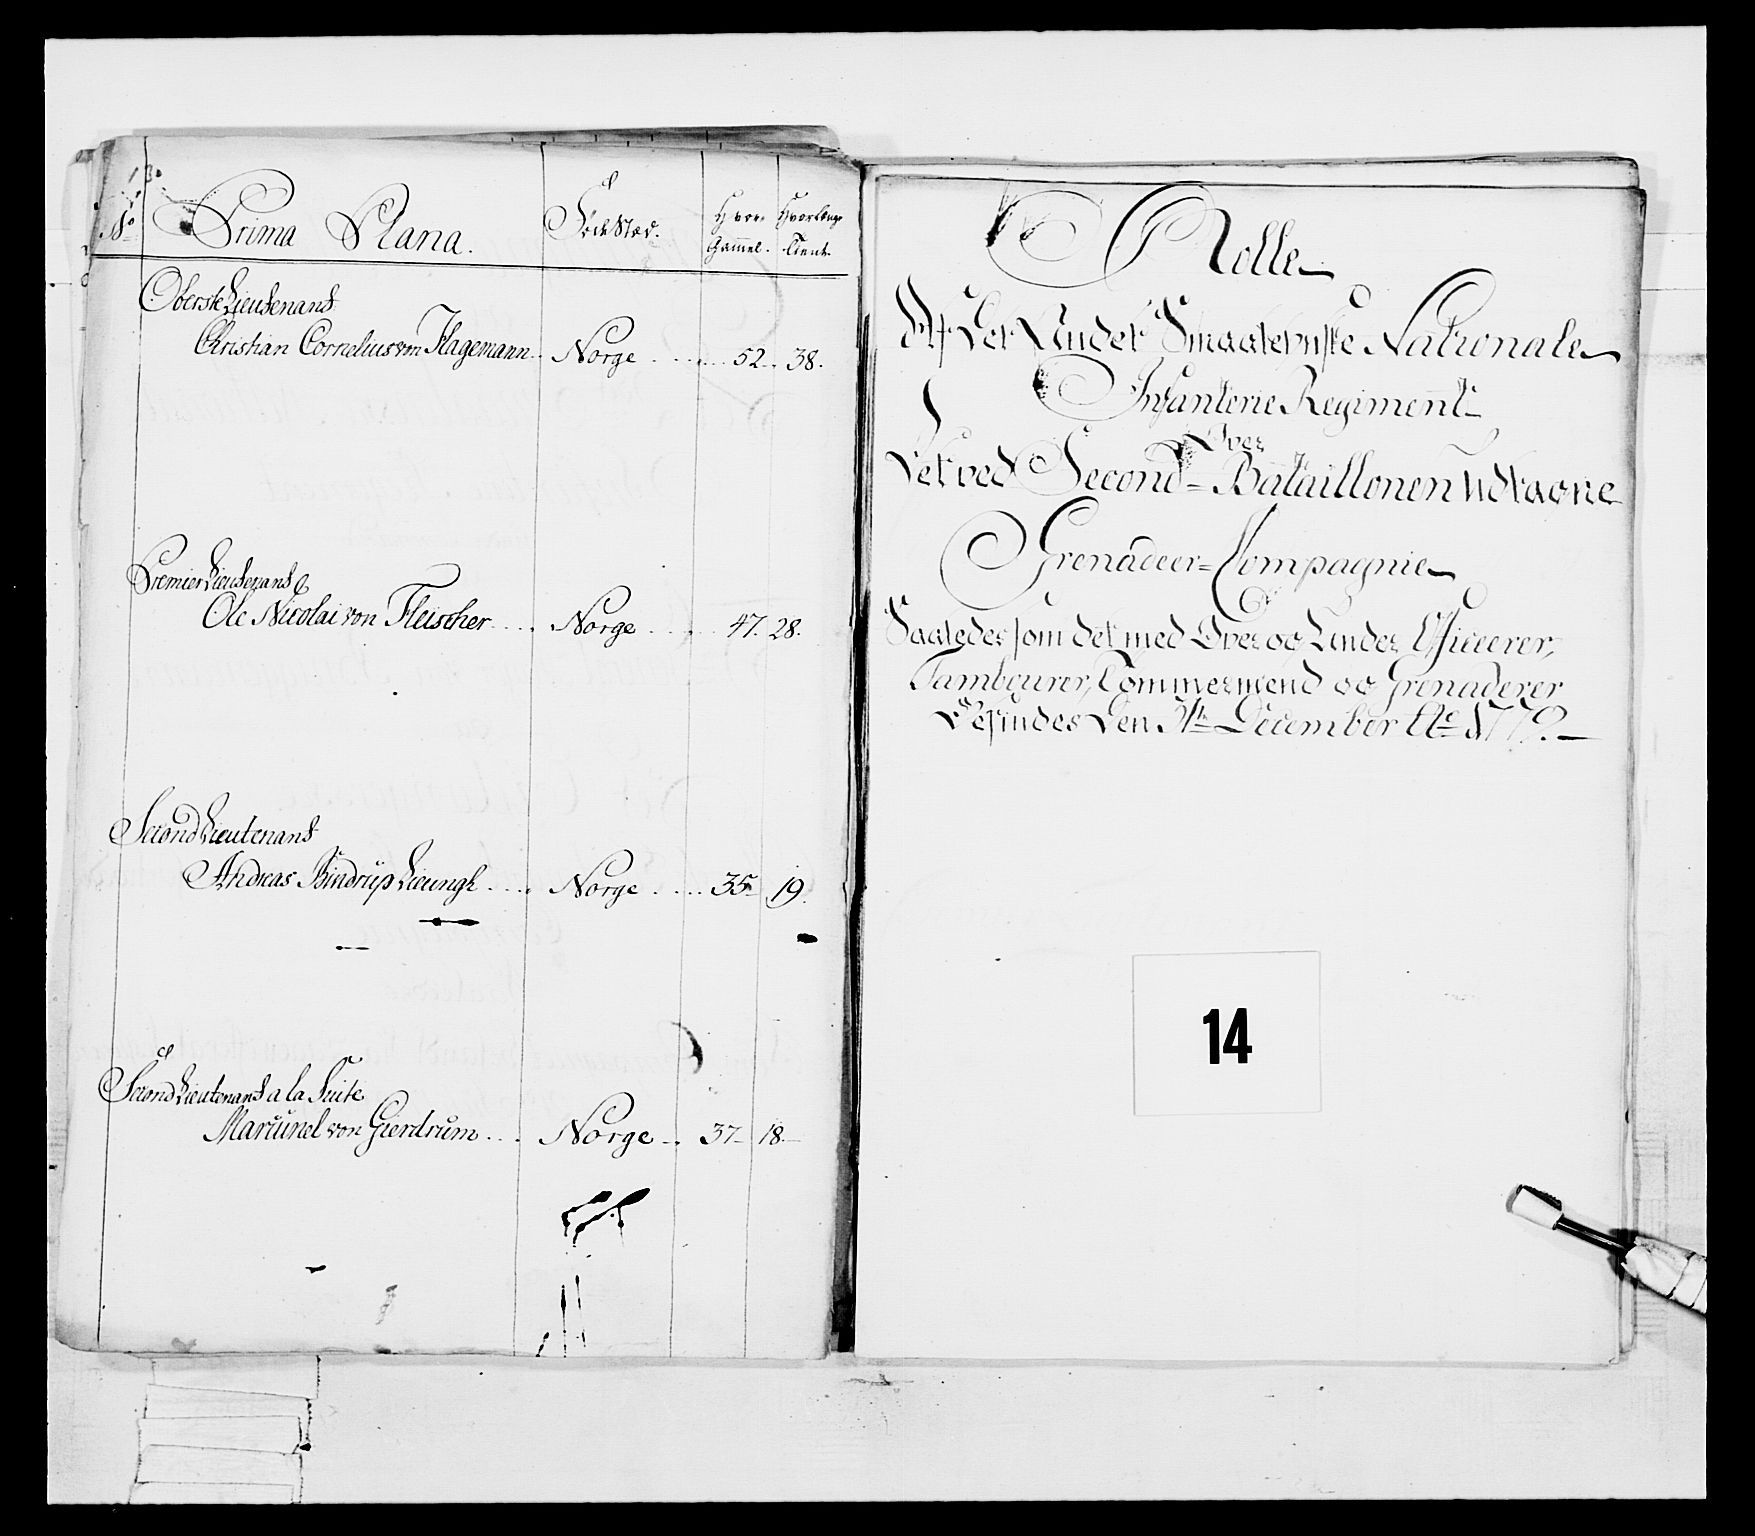 No Prima Plana. Födestæd. Hvor Gammel. Hvorlænge Tient.
Oberste Lieutenant
Christian Cornelius von Hagemann .. Norge ..... 52 .. 38.
Premier Lieutenant
Ole Nicolai von Fleischer .... Norge ..... 47. 28.
Second Lieutenant
Andreas Bindrüp Lieungh .... Norge ..... 35 19.
Second Lieutenant a la Suite
von Gierdrum ... Norge .. 37 18.
Rolle
Det Under Smaalenske Nationale
Infanterie Regiment
Over
Det ved Second-Bataillonen Udtagne
Grenadeer-Compagnie
Saaledes som det med Over og Under Officerer,
Tambourer, Tömmermend og Grenaderer
Befindes Den December Ao 1779.
14